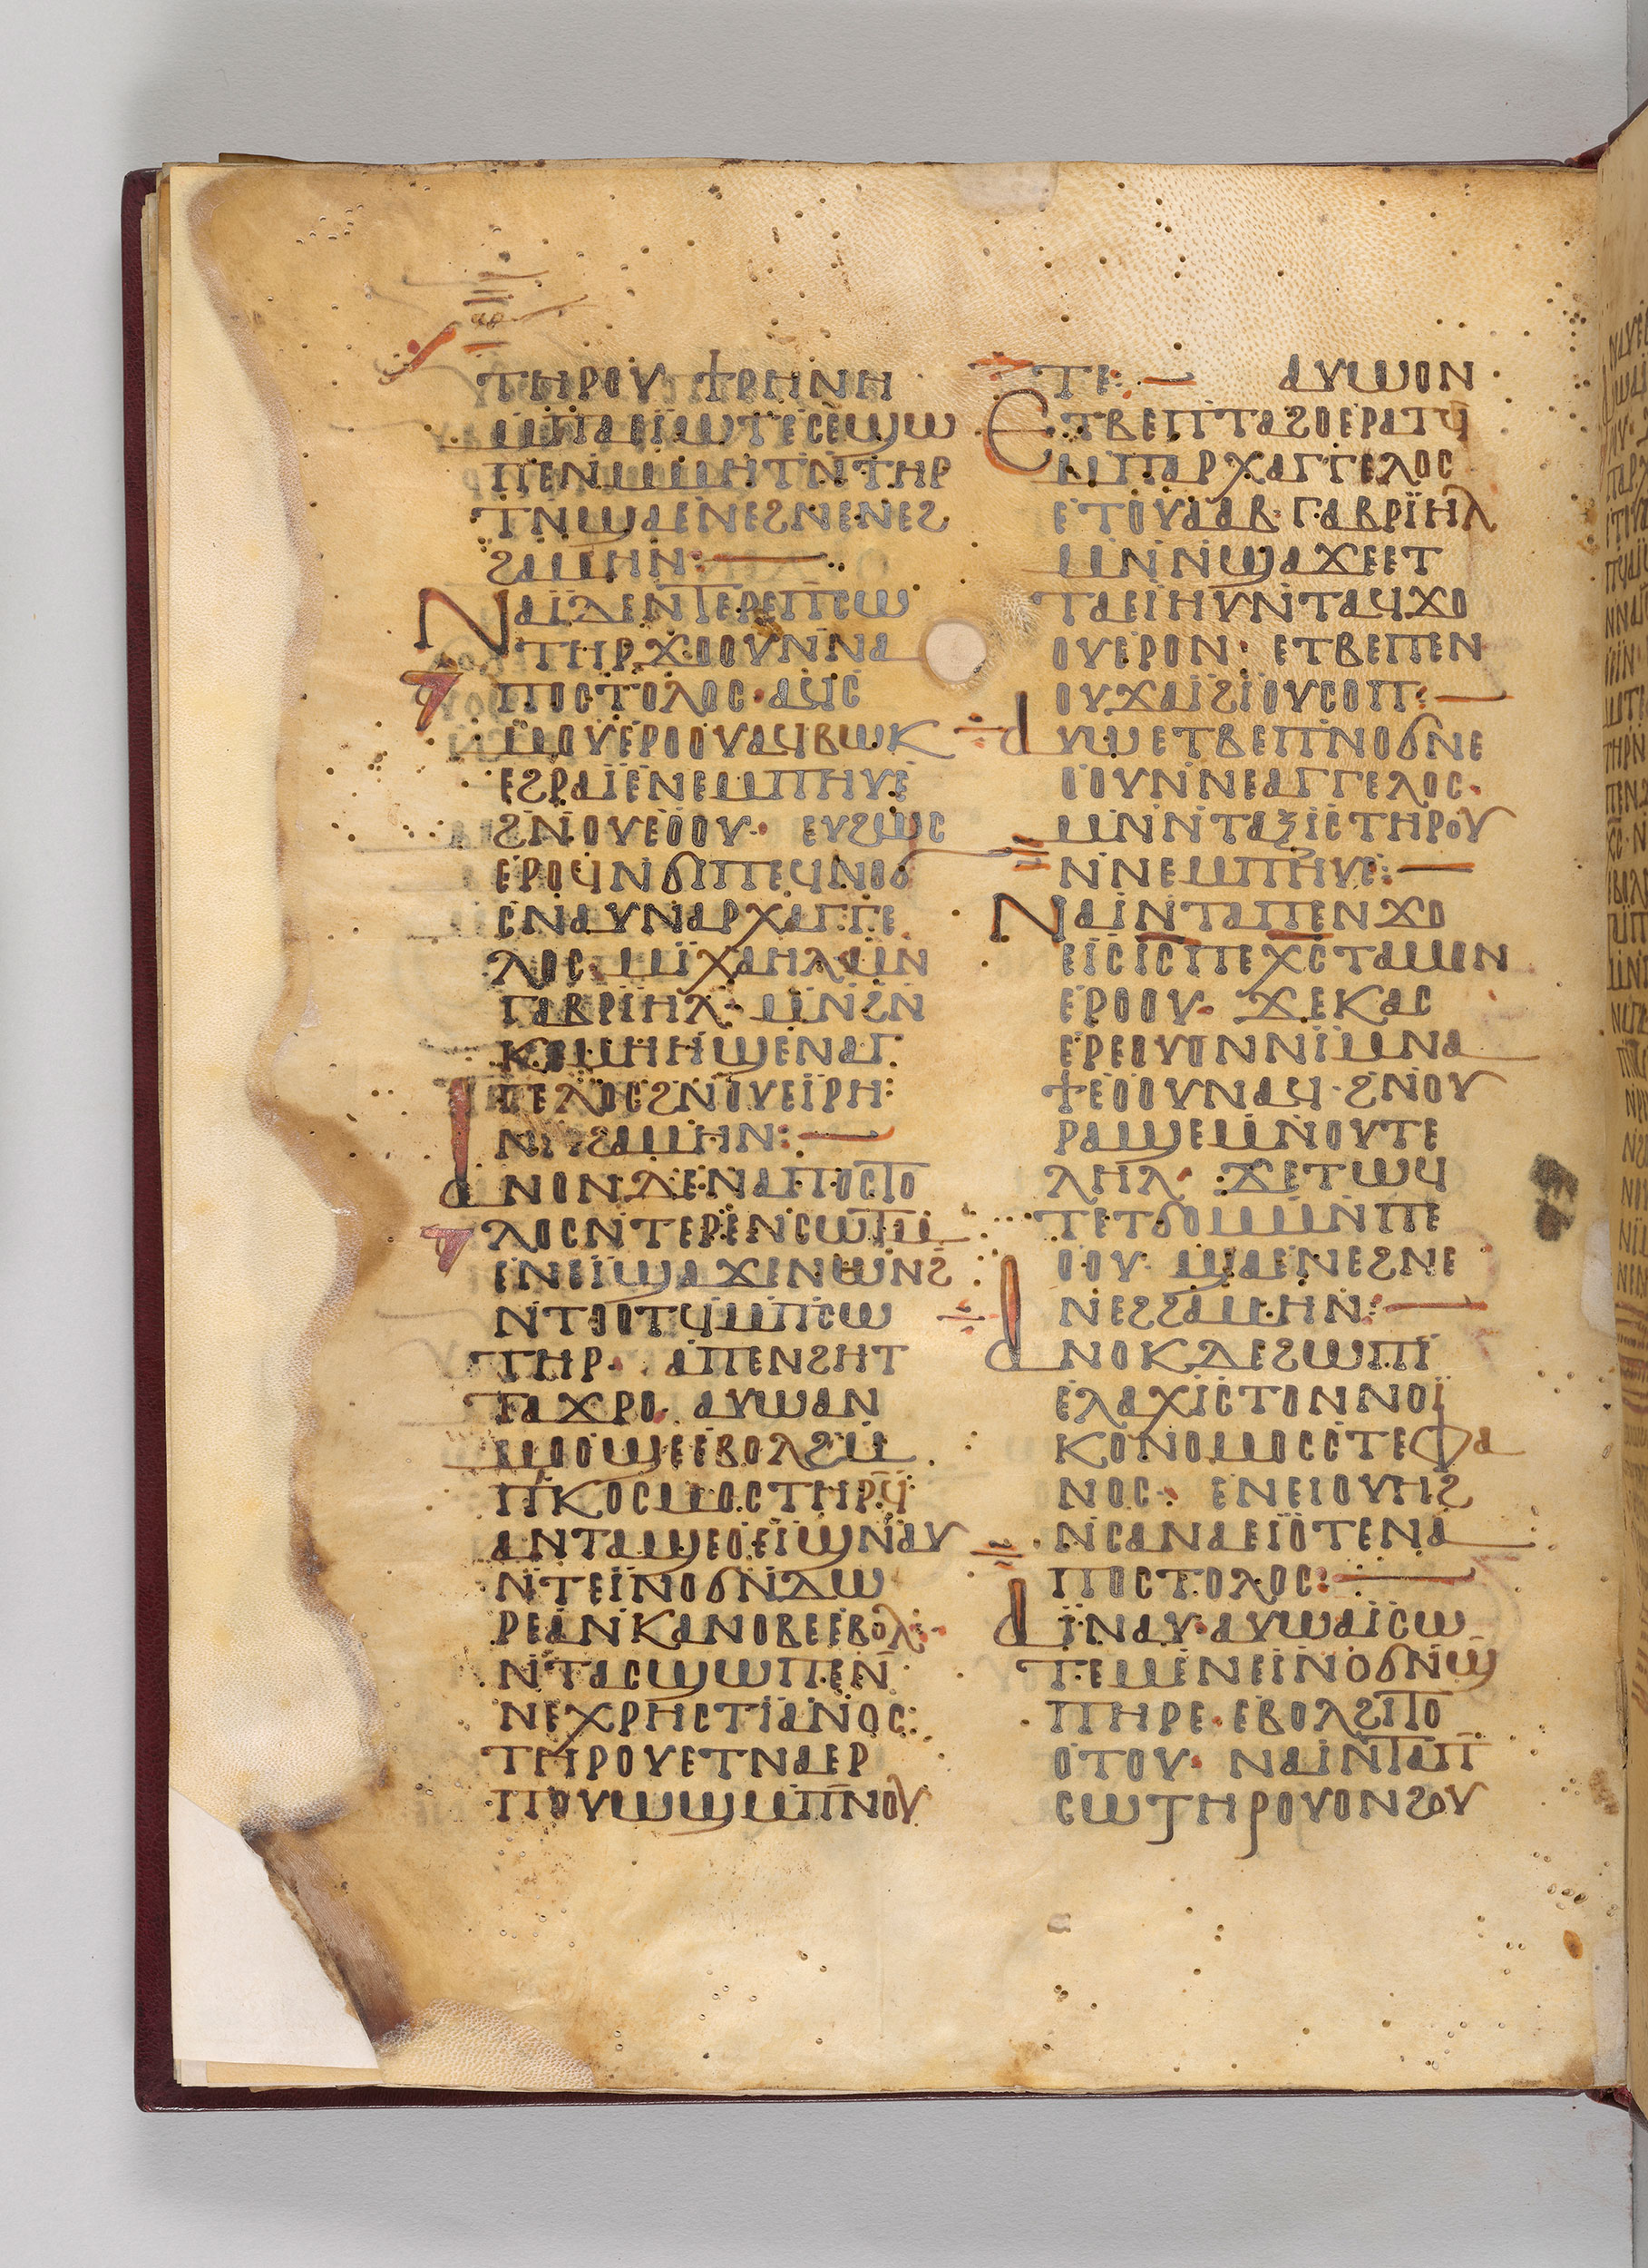 ⲧⲏⲣⲟⲩ ϯⲣⲏⲛⲏ
ⲙⲡⲁⲉⲓⲱⲧ ⲉⲥⲉϣⲱ
ⲡⲉ ⲛⲙⲙⲏⲧⲛ ⲧⲏⲣ
ⲧⲛ ϣⲁⲉⲛⲉϩ ⲛⲉⲛⲉϩ
ϩⲁⲙⲏⲛ:
Ⲛⲁⲓ̈ ⲇⲉ ⲛⲧⲉⲣⲉⲡⲥⲱ
ⲧⲏⲣ ϫⲟⲟⲩ ⲛⲛⲁ
ⲡⲟⲥⲧⲟⲗⲟⲥ· ⲁϥⲥ
ⲙⲟⲩ ⲉⲣⲟⲟⲩ ⲁϥⲃⲱⲕ
ⲉϩⲣⲁⲓ̈ ⲉⲛⲉⲙⲡⲏⲩⲉ
ϩⲛⲟⲩⲉⲟⲟⲩ· ⲉⲩϩⲙⲥ
ⲉⲣⲟϥ ⲛϭⲓⲡⲉϥⲛⲟϭ
ⲥⲛⲁⲩ ⲛⲁⲣⲭⲁⲅⲅⲉ
ⲗⲟⲥ ⲙⲓⲭⲁⲏⲗ ⲙⲛ
ⲅⲁⲃⲣⲓⲏⲗ· ⲙⲛϩⲛ
ⲕⲟⲙⲏⲏϣⲉ ⲛⲁⲅ
ⲅⲉⲗⲟⲥ ϩⲛⲟⲩⲉⲓⲣⲏ:
ⲛⲏ ϩⲁⲙⲏⲛ:
ⲁⲛⲟⲛ ⲇⲉ ⲛⲁⲡⲟⲥⲧⲟ
ⲗⲟⲥ ⲛⲧⲉⲣⲉⲛⲥⲱⲧⲙ
ⲉⲛⲉⲓ̈ϣⲁϫⲉ ⲛⲱⲛϩ
ⲛⲧⲟⲟⲧϥ ⲙⲡⲥⲱ
ⲧⲏⲣ· ⲁⲡⲉⲛϩⲏⲧ
ⲧⲁϫⲣⲟ· ⲁⲩⲱ ⲁⲛ
ⲙⲟⲟϣⲉ ⲉⲃⲟⲗ ϩⲙ
ⲡⲕⲟⲥⲙⲟⲥ ⲧⲏⲣϥ
ⲁⲛⲧⲁϣⲉⲟⲉⲓϣ ⲛⲁⲩ
ⲛⲧⲉⲓⲛⲟϭ ⲛⲇⲱ
ⲣⲉⲁ ⲛⲕⲁⲛⲟⲃⲉ ⲉⲃⲟⲗ·
ⲛⲧⲁⲥϣⲱⲡⲉ ⲛ
ⲛⲉⲭⲣⲏⲥⲧⲓⲁⲛⲟⲥ:
ⲧⲏⲣⲟⲩ ⲉⲧⲛⲁⲉⲣ
ⲡⲟⲩⲱϣ ⲙⲡⲛⲟⲩ
ⲧⲉ: ⲁⲩⲱ ⲟⲛ·
Ⲉⲧⲃⲉ ⲡⲧⲁϩⲟ ⲉⲣⲁⲧϥ
ⲙⲡⲁⲣⲭⲁⲅⲅⲉⲗⲟⲥ
ⲉⲧⲟⲩⲁⲁⲃ· ⲅⲁⲃⲣⲓ̈ⲏⲗ
ⲙⲛ ⲛϣⲁϫⲉ ⲉⲧ
ⲧⲁⲉⲓⲏⲩ ⲛⲧⲁϥϫⲟ
ⲟⲩ ⲉⲣⲟⲛ· ⲉⲧⲃⲉ ⲡⲉⲛ
ⲟⲩϫⲁⲓ ϩⲓⲟⲩⲥⲟⲡ:
ⲁⲩⲱ ⲉⲧⲃⲉ ⲡⲛⲟϭ ⲛⲉ
ⲟⲟⲩ ⲛⲛⲉⲁⲅⲅⲉⲗⲟⲥ·
ⲙⲛ ⲛⲧⲁⲝⲓⲥ ⲧⲏⲣⲟⲩ
ⲛⲛⲉⲙⲡⲏⲩⲉ:
Ⲛⲁⲓ ⲛⲧⲁⲡⲉⲛϫⲟ
ⲉⲓⲥ ⲓⲥ ⲡⲉⲭⲥ ⲧⲁⲙⲟⲛ
ⲉⲣⲟⲟⲩ· ϫⲉⲕⲁⲥ
ⲉⲣⲉⲟⲩⲟⲛ ⲛⲓⲙ ⲛⲁ
ϯⲉⲟⲟⲩ ⲛⲁϥ· ϩⲛⲟⲩ
ⲣⲁϣⲉ ⲙⲛⲟⲩⲧⲉ
ⲗⲏⲗ· ϫⲉ ⲧⲱϥ
ⲧⲉ ⲧϭⲟⲙ ⲙⲛ ⲡⲉ
ⲟⲟⲩ· ϣⲁⲉⲛⲉϩ ⲛⲉ
ⲛⲉϩ ϩⲁⲙⲏⲛ:
ⲁⲛⲟⲕ ⲇⲉ ϩⲱ ⲡⲓ
ⲉⲗⲁⲭⲓⲥⲧⲟⲛ ⲛⲟⲓ̈
ⲕⲟⲛⲟⲙⲟⲥ ⲥⲧⲉⲫⲁ
ⲛⲟⲥ· ⲉⲛⲉⲓⲟⲩⲏϩ
ⲛⲥⲁ ⲛⲁⲉⲓⲟⲧⲉ ⲛⲁ
ⲡⲟⲥⲧⲟⲗⲟⲥ:
ⲁⲓ̈ⲛⲁⲩ· ⲁⲩⲱ ⲁⲓ̈ⲥⲱ
ⲧⲉⲙ ⲉⲛⲉⲓⲛⲟϭ ⲛϣ
ⲡⲏⲣⲉ· ⲉⲃⲟⲗ ϩⲓⲧⲟ
ⲟⲧⲟⲩ· ⲛⲁⲓ ⲛⲧⲁⲡ
ⲥⲱⲧⲏⲣ ⲟⲩⲟⲛϩⲟⲩ